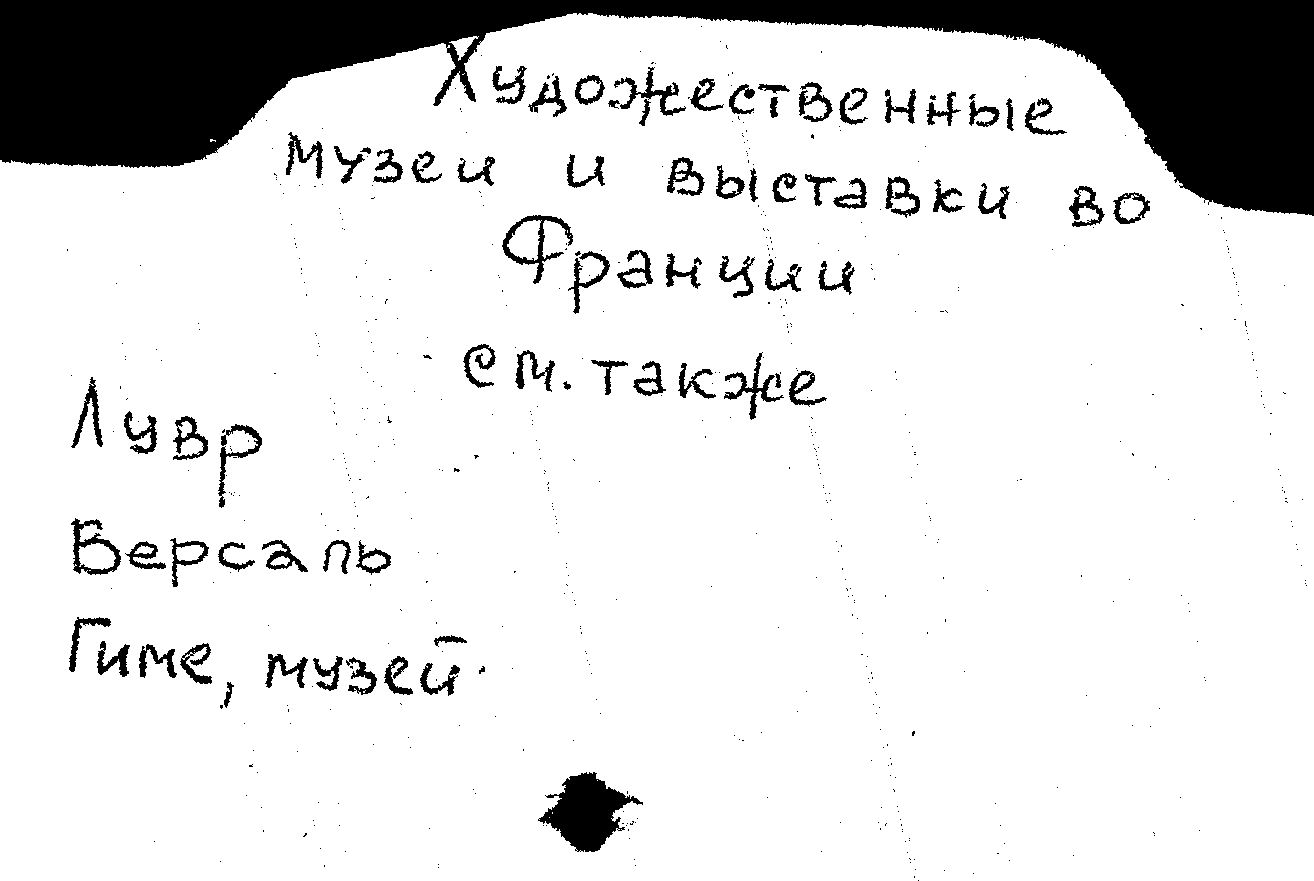 Художественные
музеи и выставки во
Франции
см. также
Лувр
Версаль
Гиме, музей